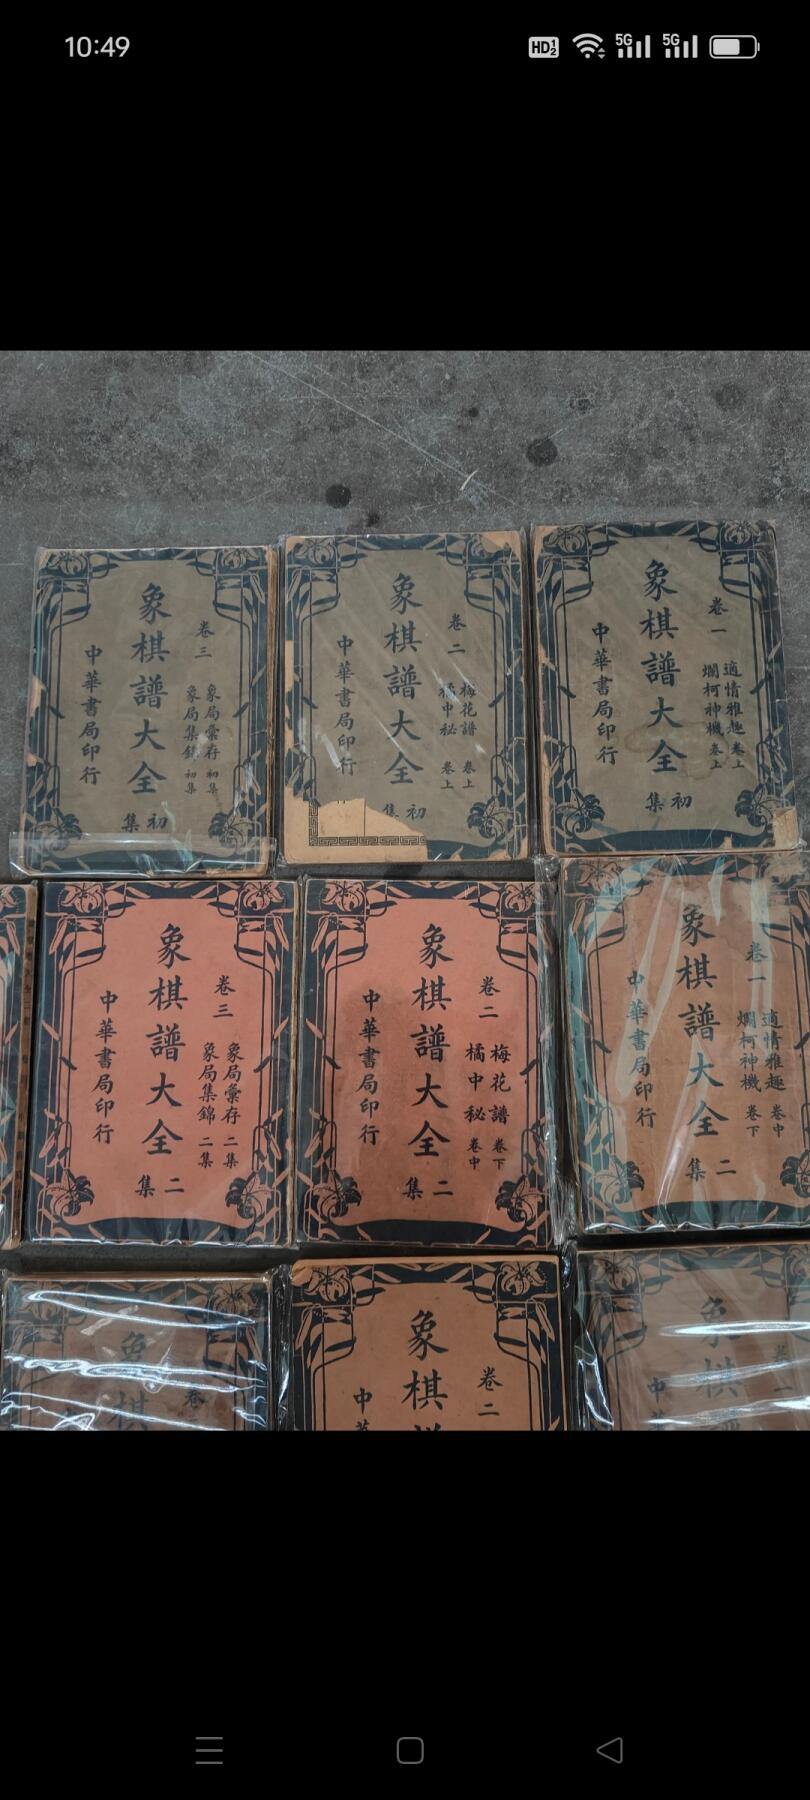 10:49
HD 1 2
5G
5G
卷一
適情雅趣 卷上
爛柯神機 卷上
象棋譜大全
初集
中華書局印行
卷二
梅花譜 卷上
橘中秘 卷上
象棋譜大全
初集
中華書局印行
卷三
象局彙存 初集
象局集錦 初集
象棋譜大全
初集
中華書局印行
卷一
適情雅趣 卷中
爛柯神機 卷下
象棋譜大全
二集
中華書局印行
卷二
梅花譜 卷下
橘中秘 卷中
象棋譜大全
二集
中華書局印行
卷三
象局彙存 二集
象局集錦 二集
象棋譜大全
二集
中華書局印行
象棋
中
卷二
象棋
中
卷
象棋